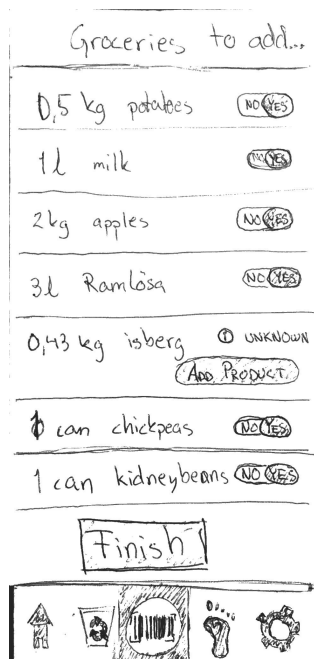 Groceries to add...
0,5 kg potatoes NO YES
1 l milk NO YES
2 kg apples NO YES
3 l Ramlösa NO YES
0,43 kg isberg ⓘ UNKNOWN
ADD PRODUCT
1 can chickpeas NO YES
1 can kidneybeans NO YES
Finish